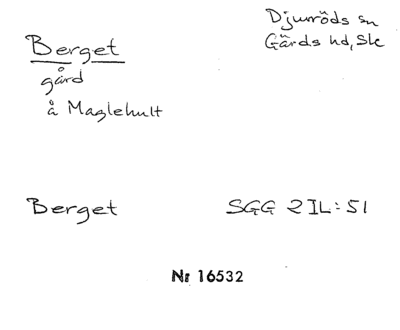 Berget
gård
å Maglehult
Djurröds sn
Gärds hd, Sk
Berget
SGG 2 IL: 51
Nr 16532